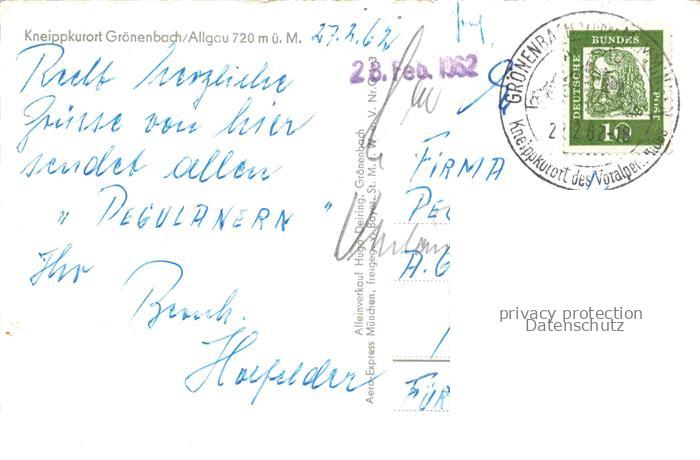 Kneippkurort Grönenbach/Allgau 720 m ü. M.
27.2.62
28. Feb. 1962
Recht herzliche
Grüsse von hier
sendet allen
„ PEGULANERN "
Ihr
Bernh.
Alleinverkauf Hugo Deiring, Grönenbach
Aero-Express München, freigeg. v. Bayer. St. M.
FIRMA
PE
A.G
FÜR
GRÖNENBACH
Kneippkurort des Voralpen
DEUTSCHE
BUNDES
POST
10
privacy protection
Datenschutz